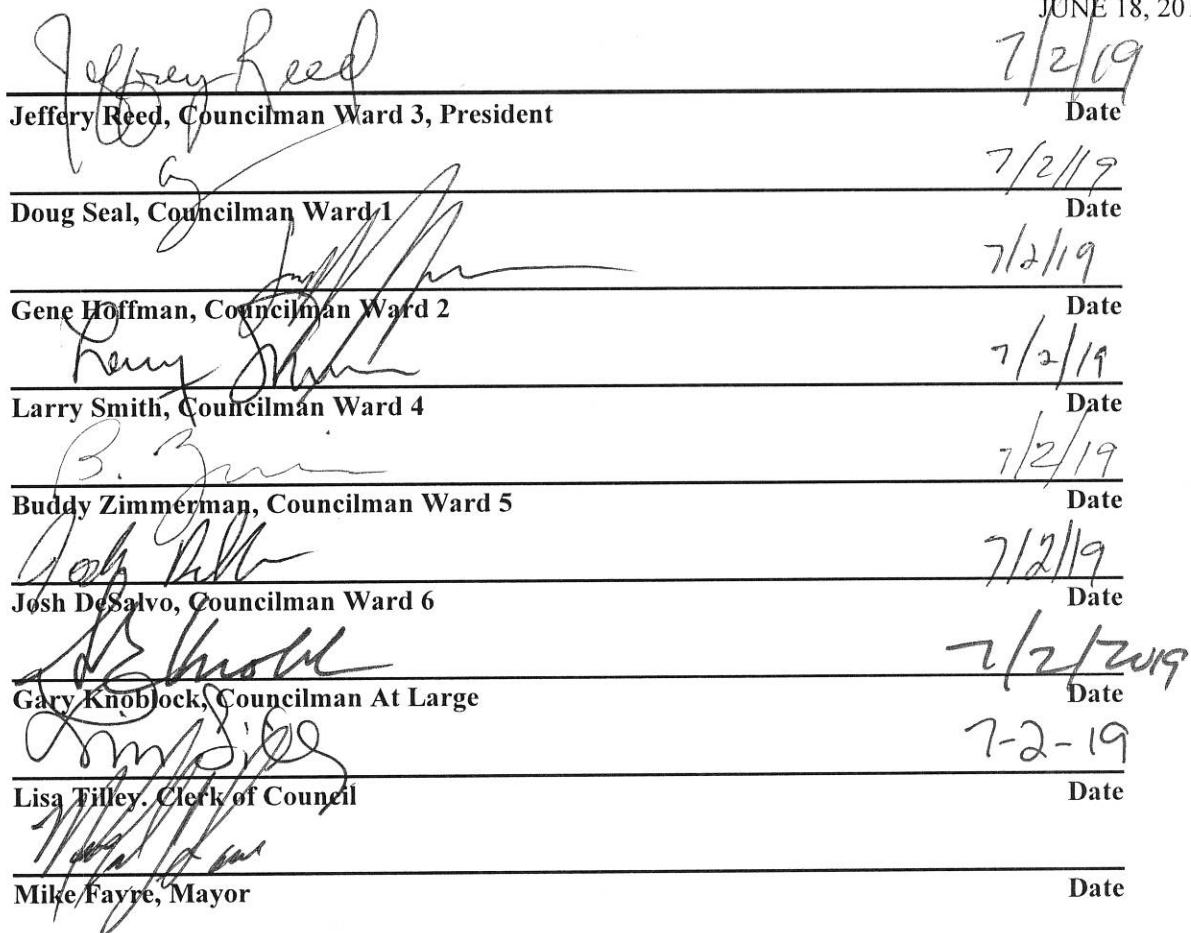 JUNE 18, 20
Jeffrey Reed 7/2/19
Jeffery Reed, Councilman Ward 3, President Date
7/2/19
Doug Seal, Councilman Ward 1 Date
7/2/19
Gene Hoffman, Councilman Ward 2 Date
Larry 7/2/19
Larry Smith, Councilman Ward 4 Date
B. 7/2/19
Buddy Zimmerman, Councilman Ward 5 Date
Josh 7/2/19
Josh DeSalvo, Councilman Ward 6 Date
7/2/2019
Gary Knoblock, Councilman At Large Date
7-2-19
Lisa Tilley. Clerk of Council Date
Mike Fayre, Mayor Date